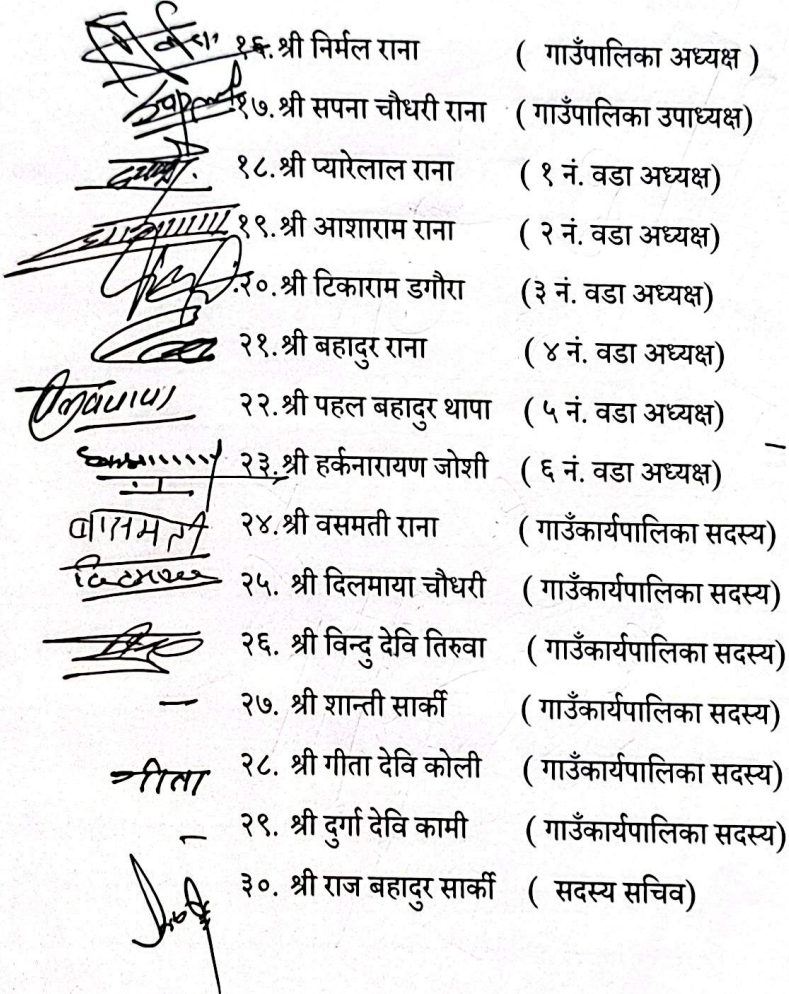 १६.श्री निर्मल राना ( गाउँपालिका अध्यक्ष )
१७.श्री सपना चौधरी राना ( गाउँपालिका उपाध्यक्ष)
१८.श्री प्यारेलाल राना ( १ नं. वडा अध्यक्ष)
१९.श्री आशाराम राना ( २ नं. वडा अध्यक्ष)
२०.श्री टिकाराम डगौरा (३ नं. वडा अध्यक्ष)
२१.श्री बहादुर राना ( ४ नं. वडा अध्यक्ष)
२२.श्री पहल बहादुर थापा ( ५ नं. वडा अध्यक्ष)
२३.श्री हर्कनारायण जोशी ( ६ नं. वडा अध्यक्ष)
वासमती २४.श्री वसमती राना ( गाउँकार्यपालिका सदस्य)
२५. श्री दिलमाया चौधरी ( गाउँकार्यपालिका सदस्य)
२६. श्री विन्दु देवि तिरुवा ( गाउँकार्यपालिका सदस्य)
२७. श्री शान्ती सार्की ( गाउँकार्यपालिका सदस्य)
गीता २८. श्री गीता देवि कोली ( गाउँकार्यपालिका सदस्य)
२९. श्री दुर्गा देवि कामी ( गाउँकार्यपालिका सदस्य)
३०. श्री राज बहादुर सार्की ( सदस्य सचिव)